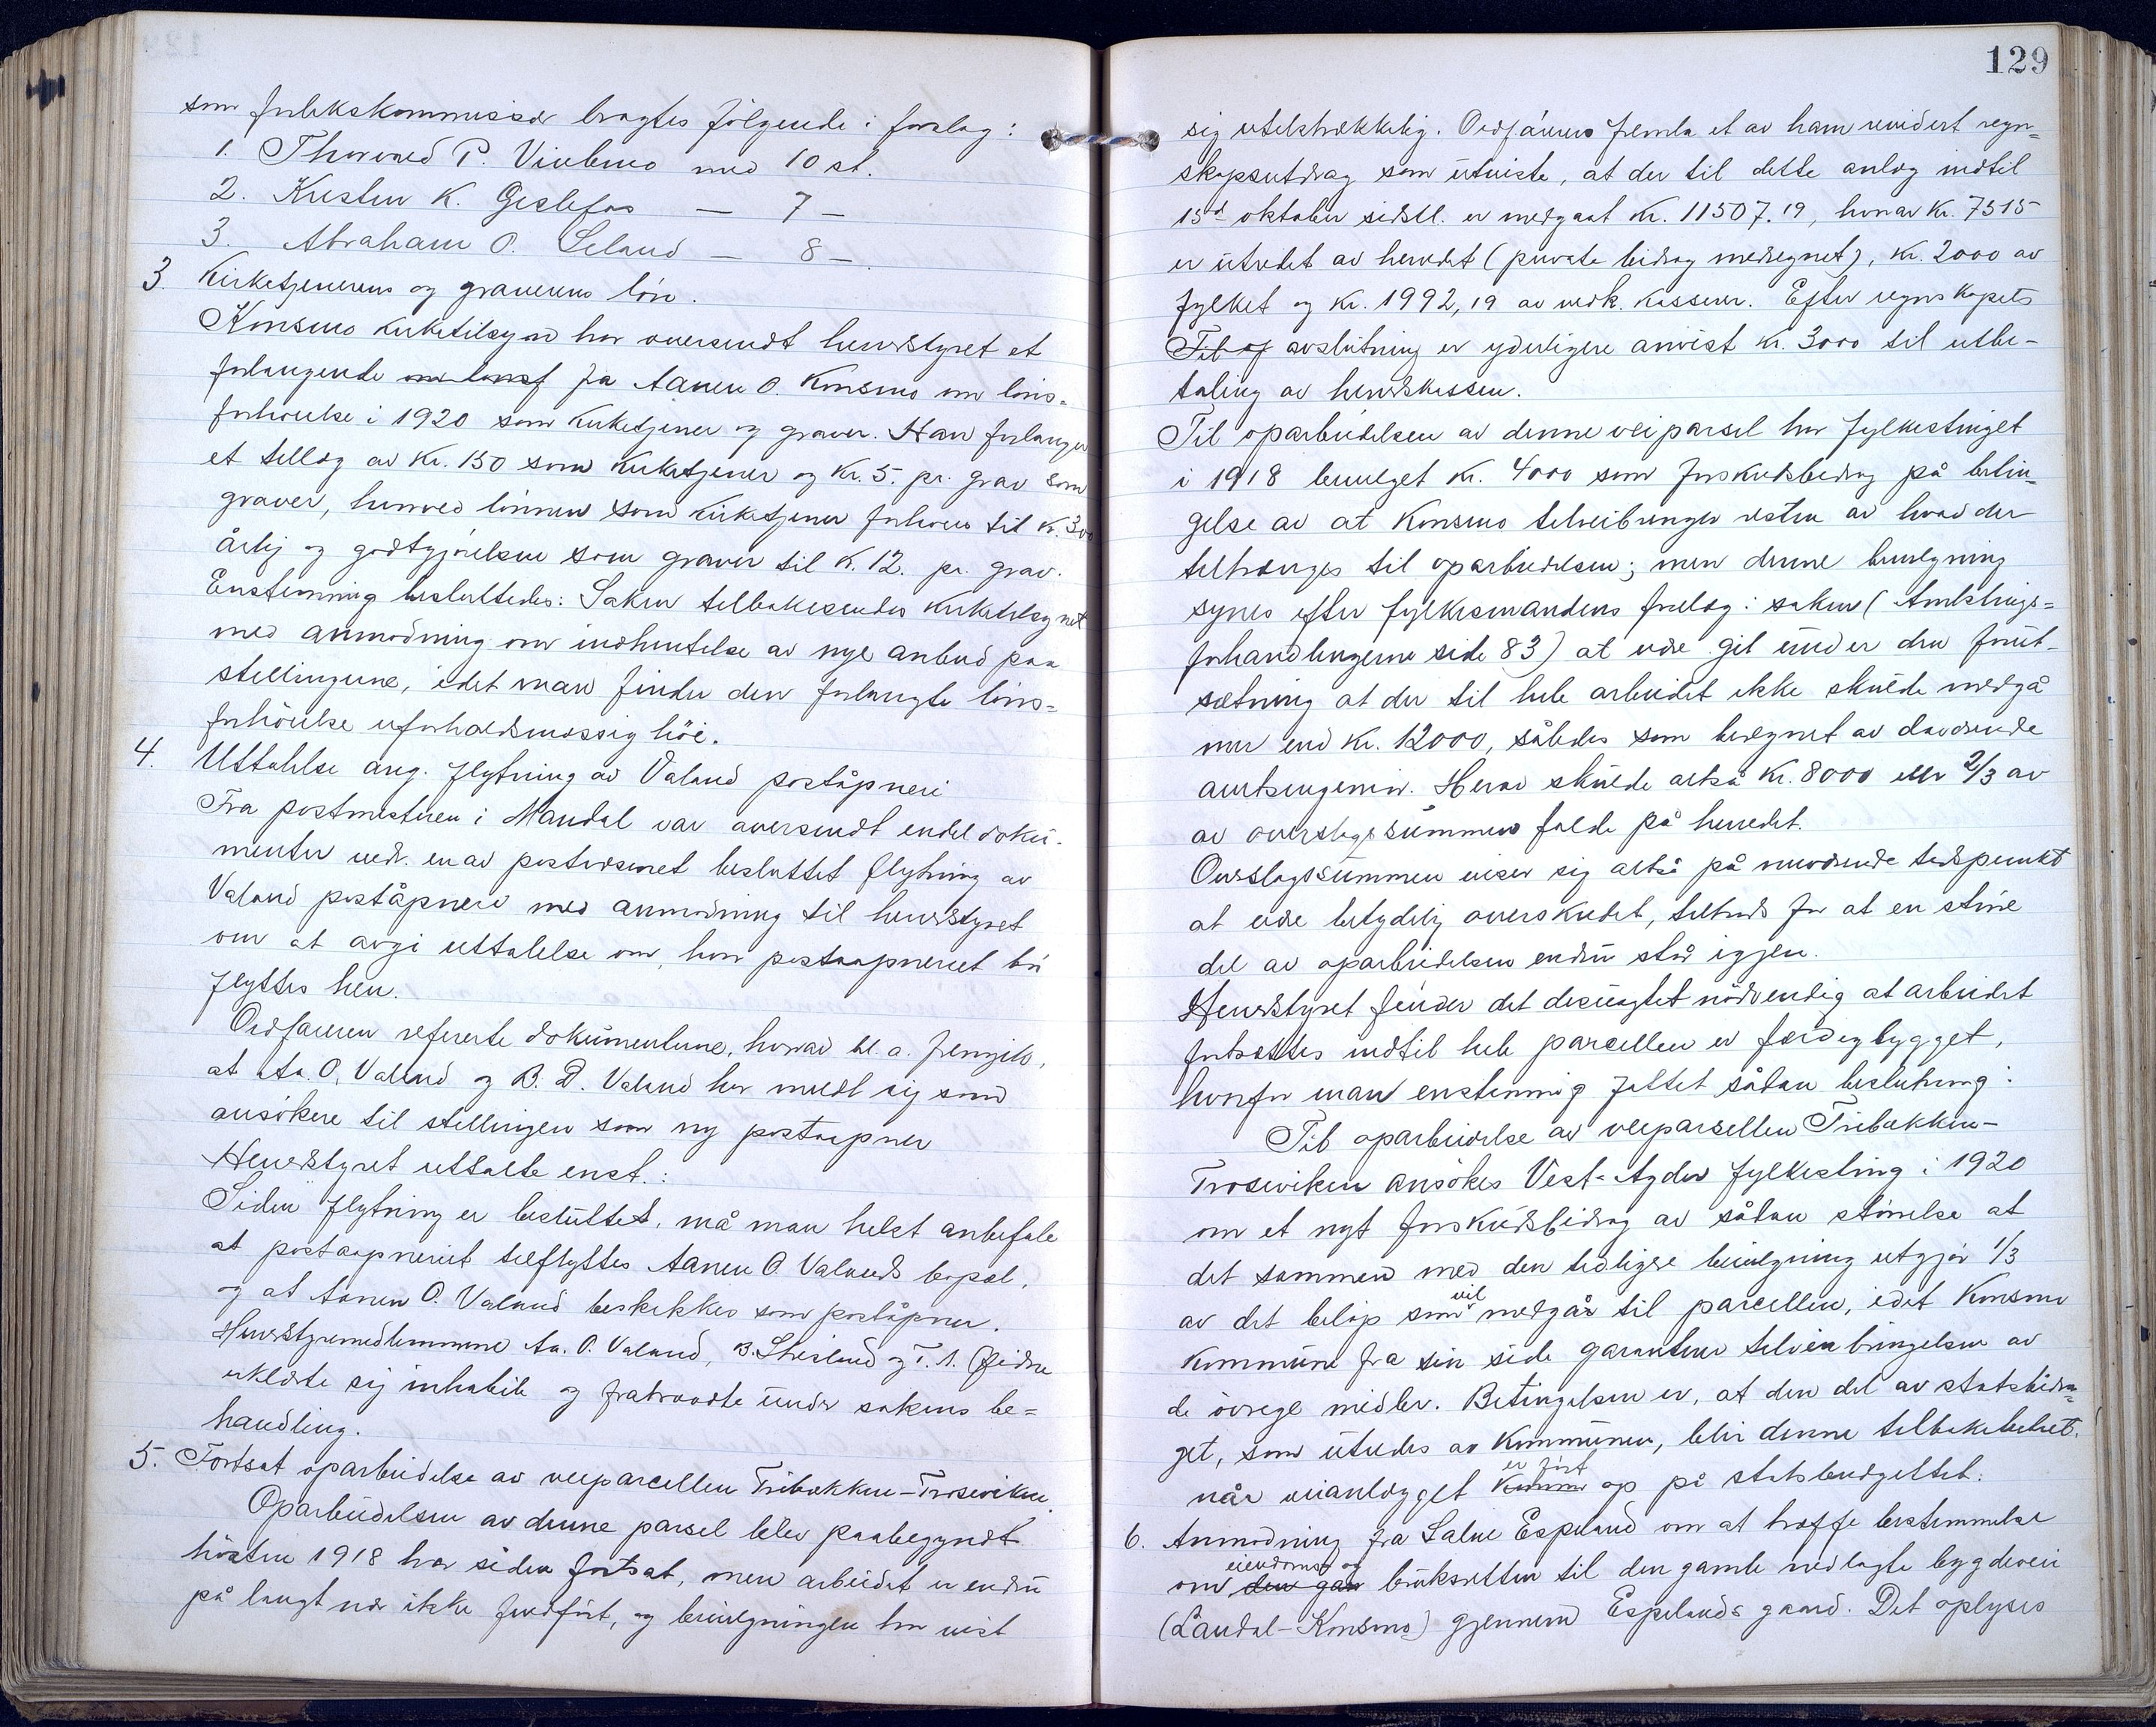 som forlikskommissær bragtes følgende i forslag:
1. Thorvald P. Viblemo med 10 st.
2. Kristen K. Gislefos — 7 —
3. Abraham O. Seland — 8 —.
3. Kirketjenerens og graverens løn.
Konsmo kirketilsyn har oversendt herredstyret et
forlangende fra Aanen O. Konsmo om løns-
forhøielse i 1920 som kirketjener og graver. Han forlanger
et tillæg av Kr. 150 som kirketjener og Kr. 5. pr. grav som
graver, hvorved lønnen som kirketjener forhøies til Kr. 300
årlig og godtgjørelsen som graver til Kr. 12. pr. grav.
Enstemmig besluttedes: Saken tilbakesendes kirketilsynet
med anmodning om indhentelse av nye anbud paa
stillingene, idet man finder den forlangte løns-
forhøielse uforholdsmæssig høi.
4. Uttalelse ang. flytning av Valand poståpneri
Fra postmesteren i Mandal var oversendt endel doku-
menter vedr. en av postvæsenet besluttet flytning av
Valand poståpneri med anmodning til herredstyret
om at avgi uttalelse om, hvor postaapneriet bør
flyttes hen.
Ordføreren refererte dokumentene, hvorav bl. a. fremgik,
at Aa. O. Valand og B. D. Valand har meldt sig som
ansøkere til stillingen som ny postaapner
Herredstyret uttalte enst.:
Siden flytning er besluttet, må man helst anbefale
at postaapneriet tilflyttes Aanen O. Valands bopæl,
og at Aanen O. Valand beskikkes som poståpner.
Herredstyremedlemmene Aa. O. Valand, B. Stusland og T. A. Øidne
erklærte sig inhabile og fratraadte under sakens be-
handling.
5. Fortsat oparbeidelse av veiparcellen Tribækken-Troseviken.
Oparbeidelsen av denne parsel blev paabegyndt
høsten 1918 har siden fortsat, men arbeidet er endnu
på langt nær ikke fuldført, og bevilgningen har vist
129
sig utilstrækkelig. Ordføreren fremla et av ham revidert regn-
skapsutdrag som utviste, at der til dette anlæg indtil
15d oktober sidstl. er medgaat Kr. 11507.19, hvorav Kr. 7515
er utredet av herredet (private bidrag medregnet), Kr. 2000 av
fylket og Kr. 1992,19 av vedk. kasserer. Efter regnskapets
Til of avslutning er yderligere anvist Kr. 3000 til utbe-
taling av herredskassen.
Til oparbeidelsen av denne veiparsel har fylkestinget
i 1918 bevilget Kr. 4000 som forskudsbidrag på betin-
gelse av at Konsmo tilveibringer resten av hvad der
tiltrænges til oparbeidelsen; men denne bevilgning
synes efter fylkesmandens forelæg i saken (Amtstings-
forhandlingerne side 83) at være git under den forut-
sætning at der til hele arbeidet ikke skulde medgå
mer end Kr. 12000, således som beregnet av daværende
amtsingeniør. Herav skulde altså Kr. 8000 eller 2/3 av
av overslagssummen falde på herredet.
Overslagssummen viser sig altså på nuværende tidspunkt
at være betydelig overskredet, tiltrods for at en større
del av oparbeidelsen endnu står igjen.
Herredstyret finder det desuagtet nødvendig at arbeidet
fortsættes indtil hele parcellen er færdigbygget,
hvorfor man enstemmig fattet sådan beslutning:
Til oparbeidelse av veiparsellen Tribækken-
Troseviken ansøkes Vest-Agder fylkesting i 1920
om et nyt forskudsbidrag av sådan størrelse at
det sammen med den tidligere bevilgning utgjør 1/3
av det beløp som vil medgår til parcellen, idet Konsmo
kommune fra sin side garanterer tilveiebringelsen av
de øvrige midler. Betingelsen er, at den del av statsbidra-
get, som utredes av kommunen, blir denne tilbakebetalt,
når veianlægget er ført op på statsbudgettet.
6. Anmodning fra Salve Espeland om at træffe bestemmelse
om den gam eiendoms og bruksretten til den gamle nedlagte bygdevei
(Laudal-Konsmo) gjennem Espelands gaard. Det oplyses